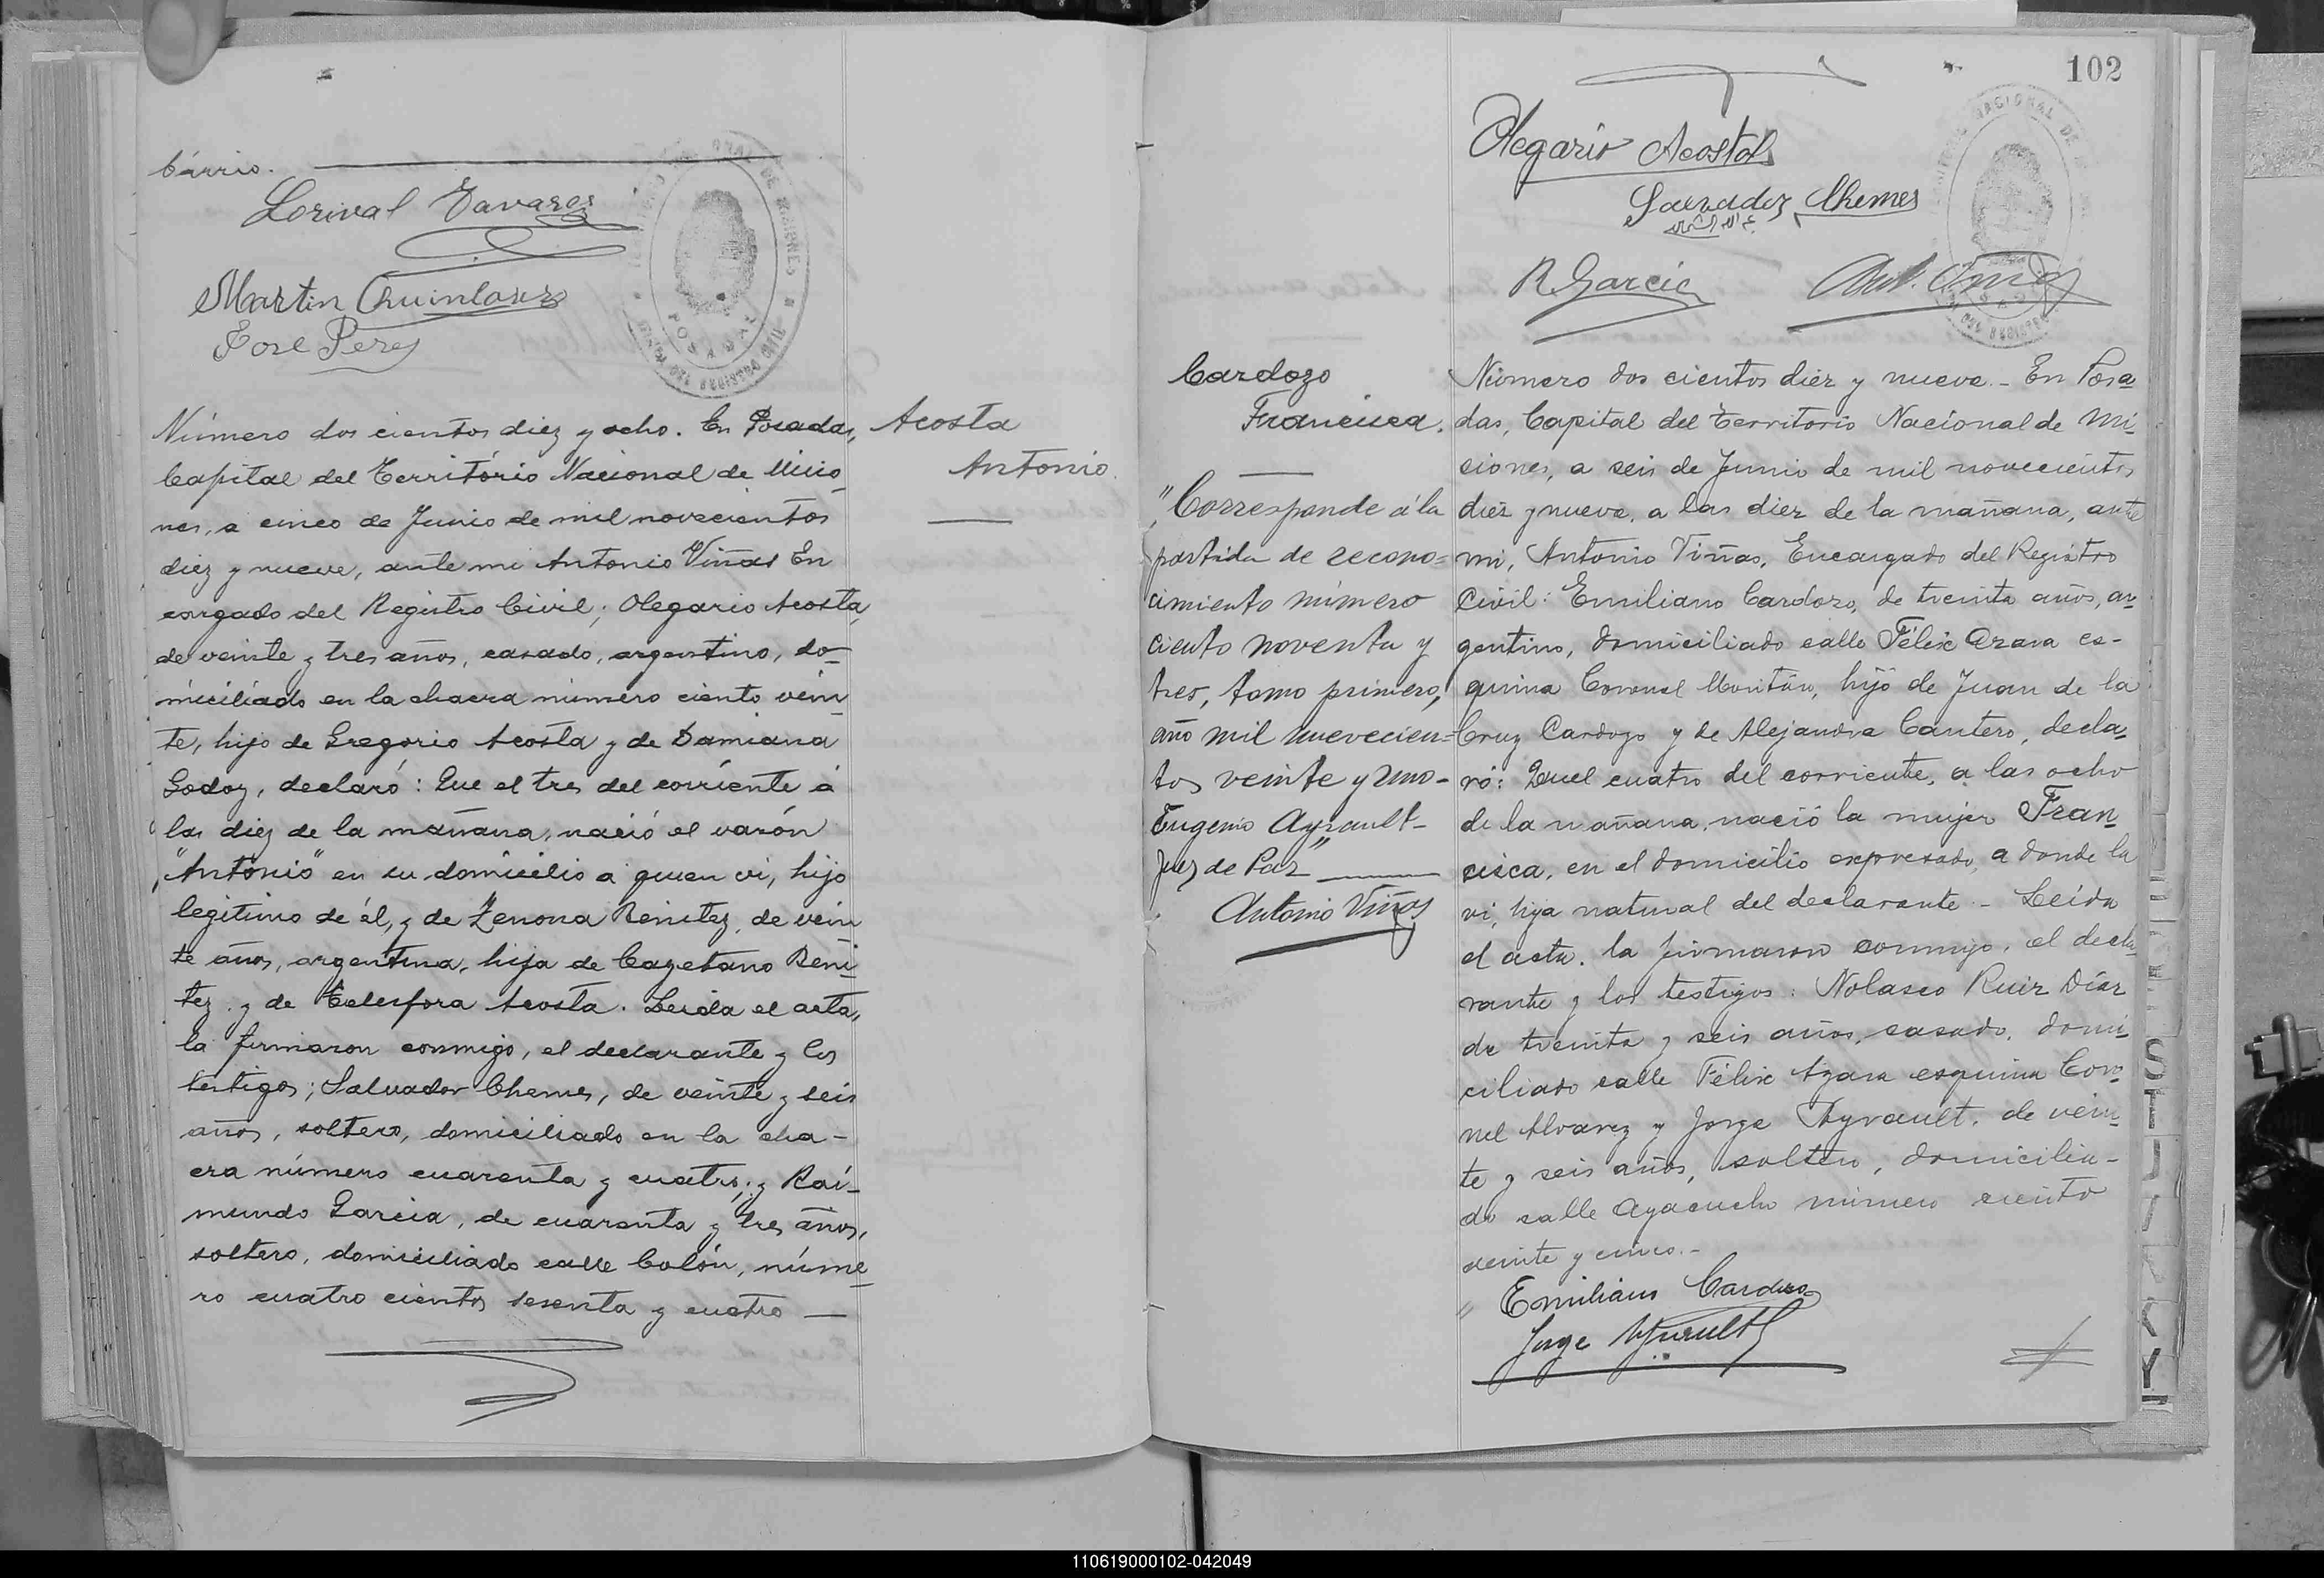 bárrio.
Lorival Tavares
Martin
José Perez
Número dos cientos diez y ocho. En Posadas,
Capital del Território Nacional de Misio
nes, a cinco de Junio de mil novecientos
diez y nueve, ante mi Antonio Viñas En
cargado del Registro Civil; Olegario Acosta,
de veinte y tres años, casado, argentino, do
miciliado en la chacra número ciento vein
te, hijo de Gregorio Acosta y de Damiana
Godoy, declaró: Que el tres del corriente á
las diez de la mañana, nació el varón
"Antonio" en su domicilio a quien vi, hijo
legitimo de él, y de Zenona Benitez, de vein
te años, argentina, hija de Cayetano Beni
tez y de Telesfora Acosta. Leida el acta,
la firmaron conmigo, el declarante y los
testigos; Salvador Chemes, de veinte y seis
años, soltero, domiciliado en la cha-
cra número cuarenta y cuatro; y Rai-
mundo Garcia, de cuarenta y tres años,
soltero, domiciliado calle Colón, núme
ro cuatro cientos sesenta y cuatro —
Acosta
Antonio.
102
Olegario Acosta
Salvador Chemes
R. Garcia
Cardozo
Francisca.
"Corresponde á la
partida de recono=
cimiento número
ciento noventa y
tres, tomo primero,
año mil nuevecien=
tos veinte y uno-
Eugenio Ayrault-
Juez de Paz"
Antonio Viñas
Número dos cientos diez y nueve. - En Posa
das, Capital del Territorio Nacional de Mi
siones, a seis de Junio de mil novecientos
diez y nueve, a las diez de la mañana, ante
mi, Antonio Viñas, Encargado del Registro
Civil: Emiliano Cardozo, de treinta años, ar
gentino, domiciliado calle Félix Azara es-
quina Coronel, hijo de Juan de la
Cruz Cardozo y de Alejandra Cantero, decla
ró: Que el cuatro del corriente, a las ocho
de la mañana, nació la mujer Fran
cisca, en el domicilio expresado, a donde la
vi, hija natural del declarante - Leída
el acta, la firmaron conmigo, el decla
rante y los testigos: Nolasco Ruiz Díaz
de treinta y seis años, casado, domi
ciliado calle Félix Azara esquina Coro
nel Alvarez y Jorge Ayrault, de vein
te y seis años, soltero, domicilia-
do calle Ayacucho número ciento
veinte y cinco. -
Emiliano Cardozo
Jorge Ayrault
110619000102-042049